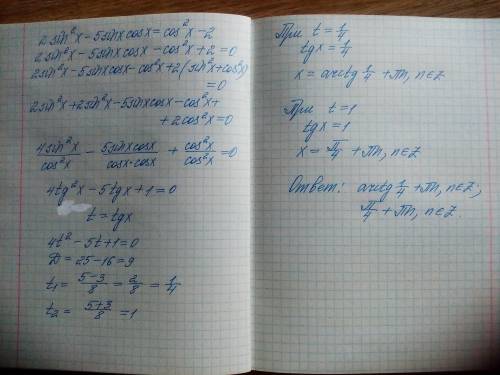 2sin²x - 5sinxcosx = cos²x - 2
2sin²x - 5sinxcosx - cos²x + 2 = 0
2sin²x - 5sinxcosx - cos²x + 2(sin²x + cos²x)
= 0
2sin²x + 2sin²x - 5sinxcosx - cos²x +
+ 2cos²x = 0
4sin²x/cos²x - 5sinxcosx/cosx·cosx + cos²x/cos²x = 0
4tg²x - 5tgx + 1 = 0
t = tgx
4t² - 5t + 1 = 0
D = 25 - 16 = 9
t₁ = 5-3/8 = 2/8 = 1/4
t₂ = 5+3/8 = 1
При t = 1/4
tgx = 1/4
x = arctg 1/4 + πn, n∈Z
При t = 1
tgx = 1
x = π/4 + πn, n∈Z
Ответ: arctg 1/4 + πn, n∈Z;
π/4 + πn, n∈Z.